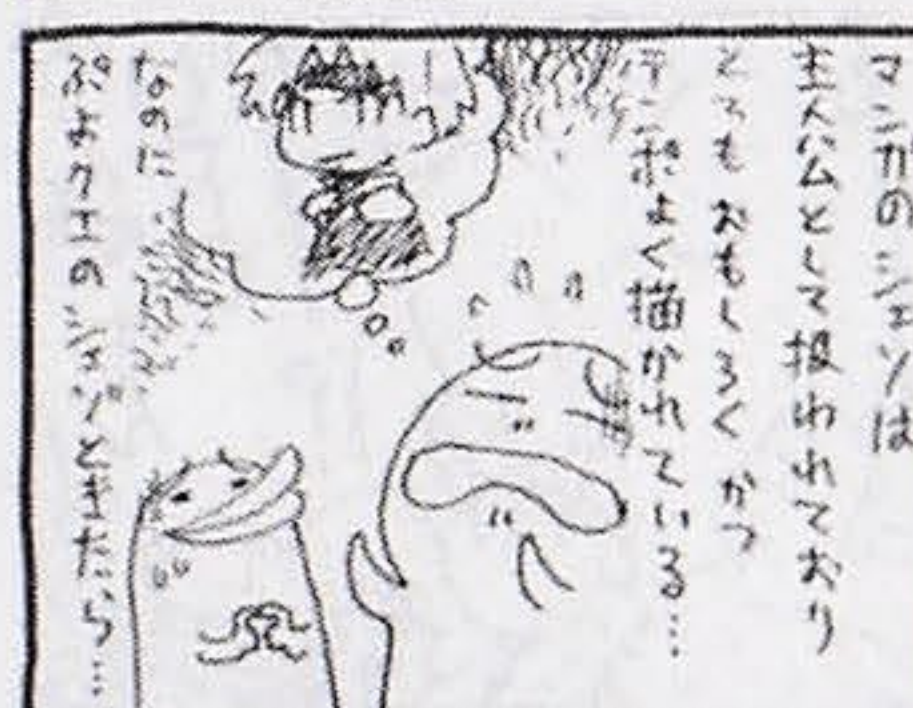 マンガのジャンは
主人公として扱われており
とてもおもしろくかつ
テンポよく描かれている…
なのに
ぷよフェスのジャンときたら…